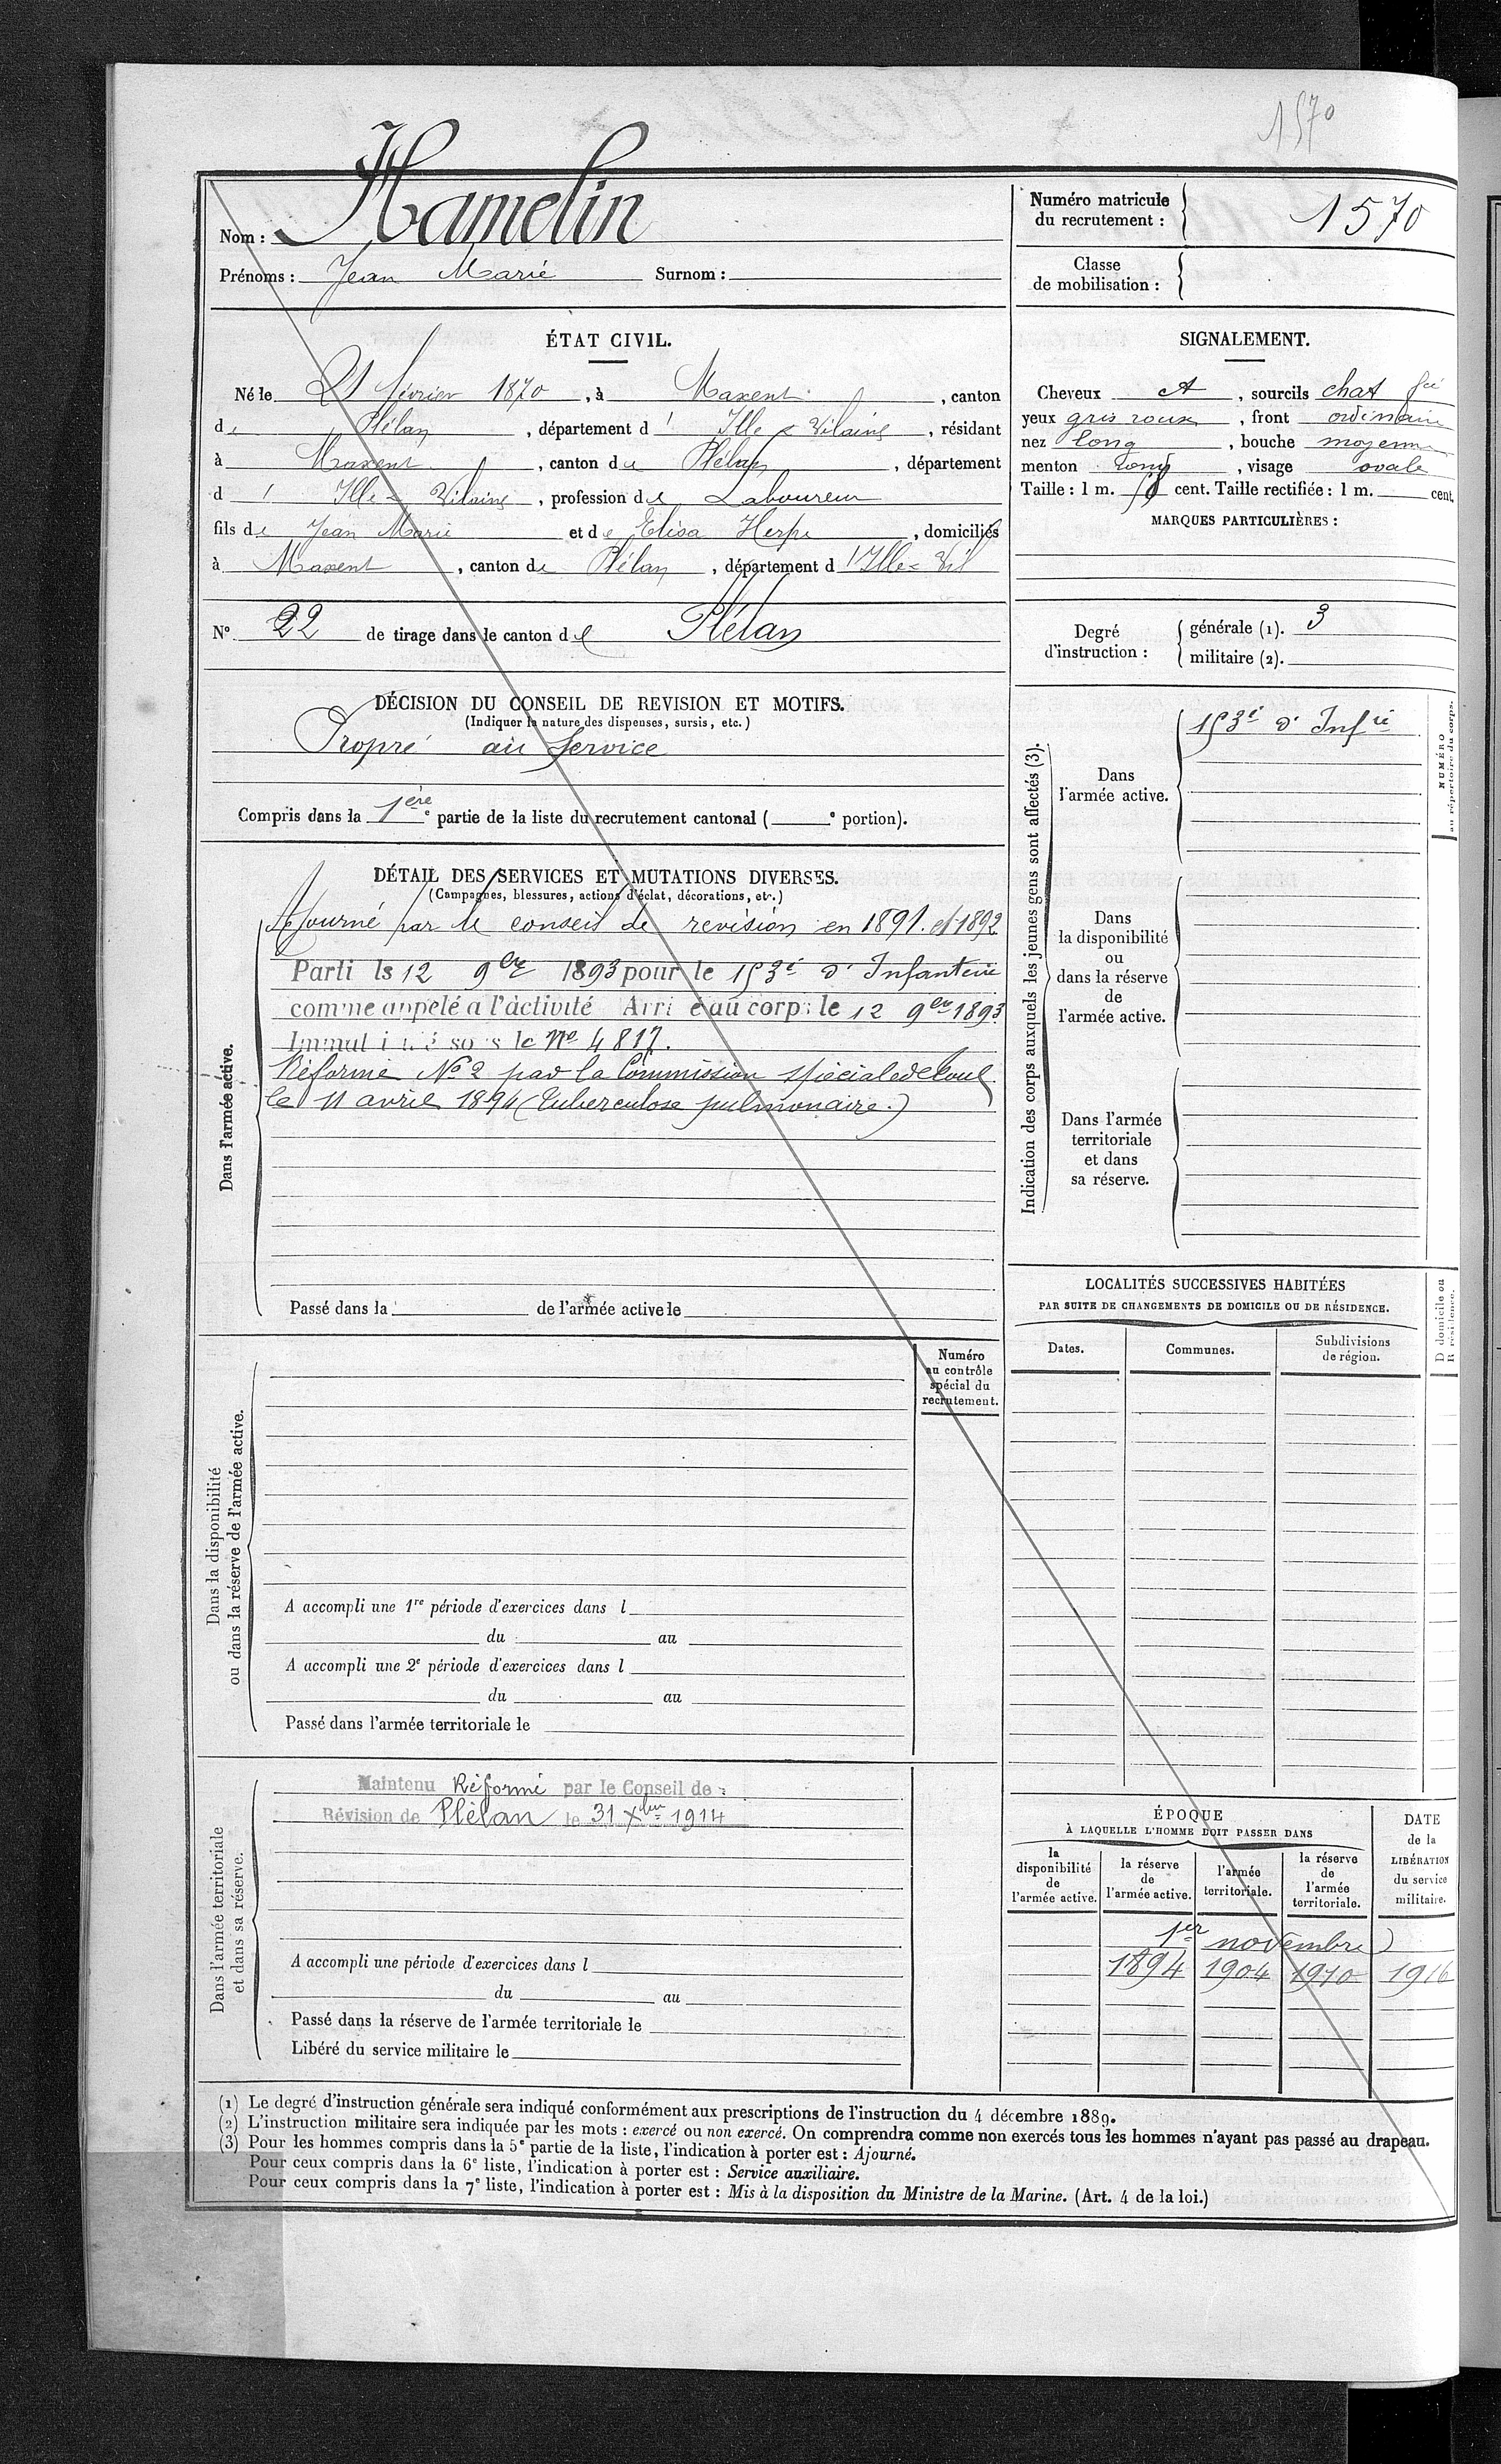 1570
Nom : Hamelin
Prénoms : Jean Marie Surnom :
Numéro matricule
du recrutement : 1570
Classe
de mobilisation :
ÉTAT CIVIL.
Né le 21 février 1870, à Maxent, canton
de Plélan, département d l' Ille & Vilaine, résidant
à Maxent, canton de Plélan, département
d l' Ille & Vilaine, profession de Laboureur
fils de Jean Marie et de Elisa Herpe, domiciliés
à Maxent, canton de Plélan, département d l'Ille & Vil
SIGNALEMENT.
Cheveux et, sourcils chat fcé
yeux gris roux, front ordinaire
nez long, bouche moyenne
menton rond, visage ovale
Taille : 1 m. cent. Taille rectifiée : 1 m. cent.
MARQUES PARTICULIÈRES :
N° 22 de tirage dans le canton de Plélan
Degré
d'instruction :
générale (1). 3
militaire (2).
DÉCISION DU CONSEIL DE REVISION ET MOTIFS.
(Indiquer la nature des dispenses, sursis, etc.)
Propre au Service
Compris dans la 1ère e partie de la liste du recrutement cantonal ( e portion).
DÉTAIL DES SERVICES ET MUTATIONS DIVERSES.
(Campagnes, blessures, actions d'éclat, décorations, etc.)
Dans l'armée active.
Ajourné par le conseil de revision en 1891. et 1892
Parti le 12 9bre 1893 pour le 153e d'Infanterie
comme appelé a l'activité Arrivé au corps le 12 9bre 1893
Immatriculé sous le No 4817.
Réformé No 2 par la Commission spéciale de Toul
le 11 avril 1894 (Tuberculose pulmonaire.)
Passé dans la de l'armée active le
Indication des corps auxquels les jeunes gens sont affectés (3).
Dans
l'armée active.
153e d'Infie
NUMÉRO
au répertoire du corps.
Dans
la disponibilité
ou
dans la réserve
de
l'armée active.
Dans l'armée
territoriale
et dans
sa réserve.
LOCALITÉS SUCCESSIVES HABITÉES
PAR SUITE DE CHANGEMENTS DE DOMICILE OU DE RÉSIDENCE.
Dates.
Communes.
Subdivisions
de région.
D domicile ou
R résidence.
Dans la disponibilité
ou dans la réserve de l'armée active.
Numéro
au contrôle
spécial du
recrutement.
A accompli une 1re période d'exercices dans l
du au
A accompli une 2e période d'exercices dans l
du au
Passé dans l'armée territoriale le
Dans l'armée territoriale
et dans sa réserve.
Maintenu Réformé par le Conseil de
Révision de Plélan le 31 Xbre 1914
A accompli une période d'exercices dans l
du au
Passé dans la réserve de l'armée territoriale le
Libéré du service militaire le
ÉPOQUE
À LAQUELLE L'HOMME DOIT PASSER DANS
la
disponibilité
de
l'armée active.
la réserve
de
l'armée active.
l'armée
territoriale.
la réserve
de
l'armée
territoriale.
DATE
de la
LIBÉRATION
du service
militaire.
1er novembre
1894 1904 1910 1916
(1) Le degré d'instruction générale sera indiqué conformément aux prescriptions de l'instruction du 4 décembre 1889.
(2) L'instruction militaire sera indiquée par les mots : exercé ou non exercé. On comprendra comme non exercés tous les hommes n'ayant pas passé au drapeau.
(3) Pour les hommes compris dans la 5e partie de la liste, l'indication à porter est : Ajourné.
Pour ceux compris dans la 6e liste, l'indication à porter est : Service auxiliaire.
Pour ceux compris dans la 7e liste, l'indication à porter est : Mis à la disposition du Ministre de la Marine. (Art. 4 de la loi.)